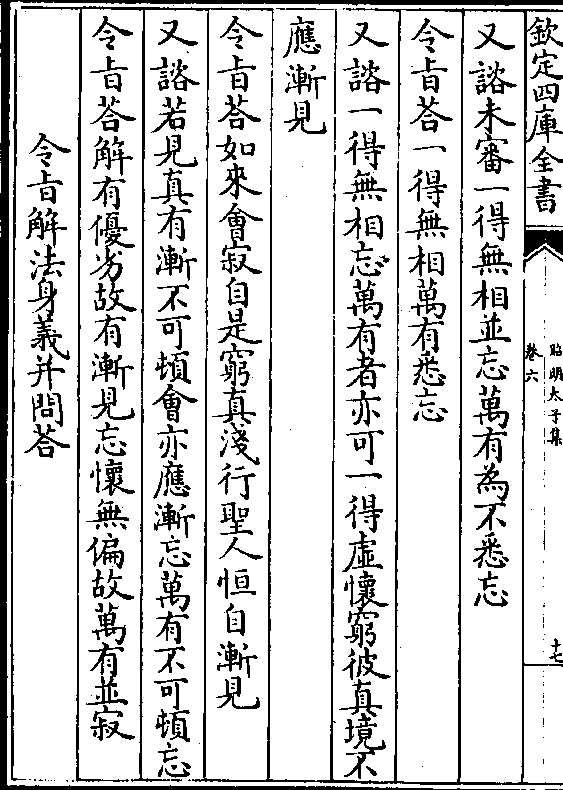 欽定四庫全書
昭明太子集
卷六
十七
又諮未審一得無相並忘萬有為不悉忘
令旨荅一得無相萬有悉忘
又諮一得無相忘萬有者亦可一得虛懷窮彼真境不
應漸見
令旨荅如來會寂自是窮真淺行聖人恒自漸見
又諮若見真有漸不可頓會亦應漸忘萬有不可頓忘
令旨荅解有優劣故有漸見忘懷無偏故萬有並寂
令旨解法身義并問荅